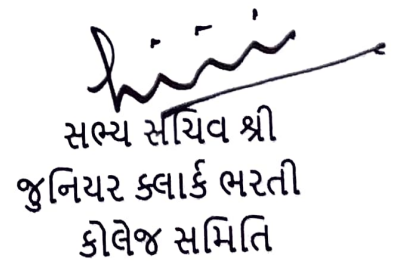 સભ્ય સચિવ શ્રી
જુનિયર ક્લાર્ક ભરતી
કોલેજ સમિતિ